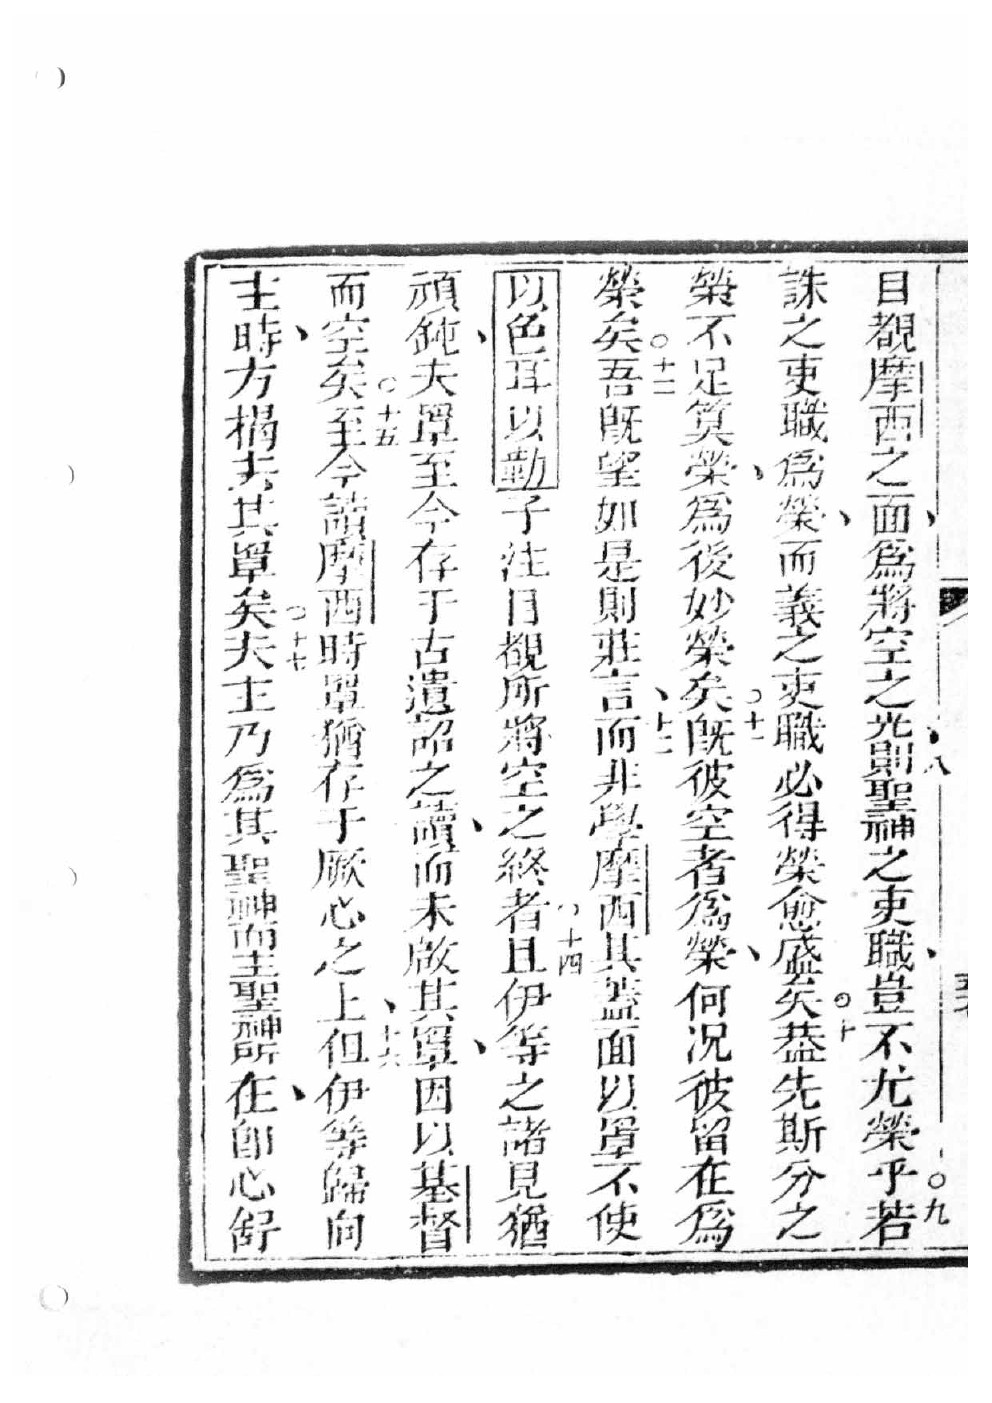 目覩摩西之面爲將空之光則八聖神之吏職豈不尤榮乎九若
誅之吏職爲榮而義之吏職必得榮愈盛矣十葢先斯分之
榮不足筭榮爲後妙榮矣十一旣彼空者爲榮何况彼留在爲
榮矣十二吾旣望如是則莊言十三而非學摩西其蓋面以罩不使
以色耳以勒子注目覩所將空之終者十四且伊等之諸見猶
頑鈍夫罩至今存于古遺詔之讀而未啟其罩因以基督
而空矣十五至今讀摩西時罩猶存于厥心之上十六但伊等歸向
主時方揭去其罩矣十七夫主乃爲其聖神而主聖神所在卽心舒